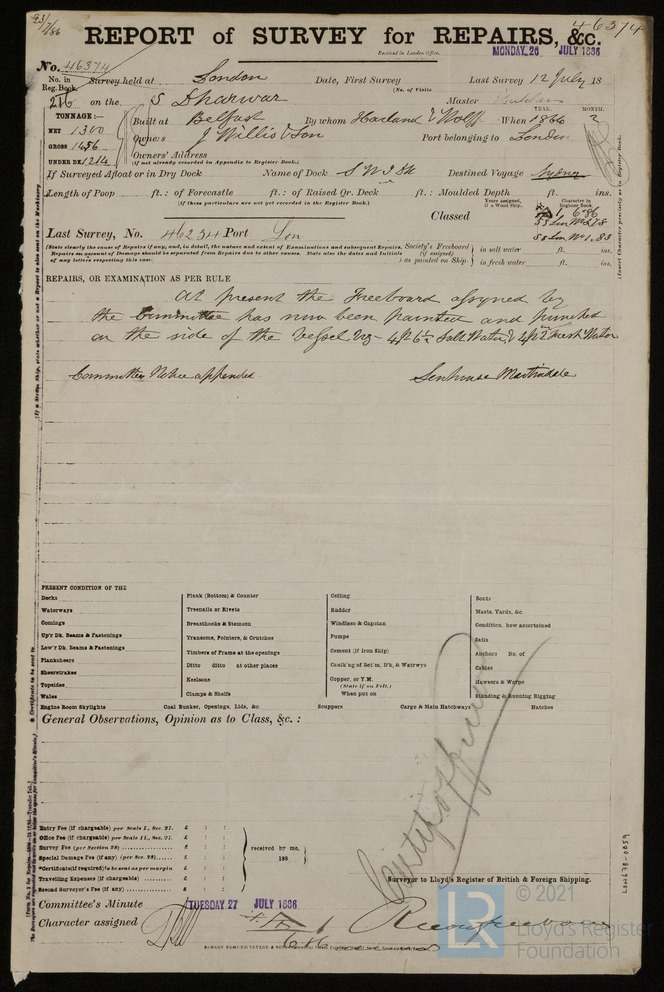 23/7/86
46374
REPORT of SURVEY for REPAIRS, &c.
Received in London Office,
MONDAY, 26 JULY 1886
No. 46374
No. in Reg. Book. Survey held at London Date, First Survey Last Survey 12 July 18
(No. of Visits
216 on the S Dharwar Master
TONNAGE:—
NET 1300
GROSS 1456
UNDER DK 1214
Built at Belfast By whom Harland & Wolff When YEAR. 1864 MONTH. 2
Owners J Willis & Son Port belonging to London
Owners' Address
(if not already recorded in Appendix to Register Book.)
If Surveyed Afloat or in Dry Dock Name of Dock S W I Dk Destined Voyage Sydney
Length of Poop ft.: of Forecastle ft.: of Raised Qr. Deck ft.: Moulded Depth ft. ins.
(If these particulars are not yet recorded in the Register Book.)
Classed
Years assigned, if a Wood Ship.
Character in Register Book
6.86
Last Survey, No. 46234 Port Lon
(State clearly the cause of Repairs if any, and, in detail, the nature and extent of Examinations and subsequent Repairs.
Repairs on account of Damage should be separated from Repairs due to other causes. State also the dates and Initials
of any letters respecting this case.
Society's Freeboard (if assigned) as painted on Ship
in salt water ft. ins.
in fresh water ft. ins.
REPAIRS, OR EXAMINATION AS PER RULE
At present the Freeboard assigned by
the Committee has now been painted and punched
on the side of the vessel viz- 4ft 6½ Salt Water & 4ft 2 Fresh Water
Committees Notice appended
Senhouse Martindale
PRESENT CONDITION OF THE
Decks
Waterways
Comings
Up'r Dk. Beams & Fastenings
Low'r Dk. Beams & Fastenings
Planksheers
Sheerstrakes
Topsides
Wales
Plank (Bottom) & Counter
Treenails or Rivets
Breasthooks & Stemson
Transoms, Pointers, & Crutches
Timbers of Frame at the openings
Ditto ditto at other places
Keelsons
Clamps & Shelfs
Ceiling
Rudder
Windlass & Capstan
Pumps
Cement (if Iron Ship)
Caulk'ng of Bot'm, D'k, & Watrwys
Copper, or Y.M.
(State if on Felt.)
When put on
Boats
Masts, Yards, &c.
Condition, how ascertained
Sails
Anchors No. of
Cables
Hawsers & Warps
Standing & Running Rigging
Engine Room Skylights Coal Bunker, Openings, Lids, &c. Scuppers Cargo & Main Hatchways Hatches
General Observations, Opinion as to Class, &c. :
Entry Fee (if chargeable) per Scale I., Sec. 27. £ : :
Office Fee (if chargeable) per Scale II., Sec. 27. £ : :
Survey Fee (per Section 28) £ : :
Special Damage Fee (if any) (per Sec. 28) £ : :
*Certificate (if required) to be sent as per margin
Travelling Expenses (if chargeable) £ : :
Second Surveyor's Fee (if any) £ : :
received by me,
188
Surveyor to Lloyd's Register of British & Foreign Shipping.
Committee's Minute TUESDAY 27 JULY 1886
Character assigned
6.86
LON678-0059
© 2021
LR
Lloyd's Register
Foundation